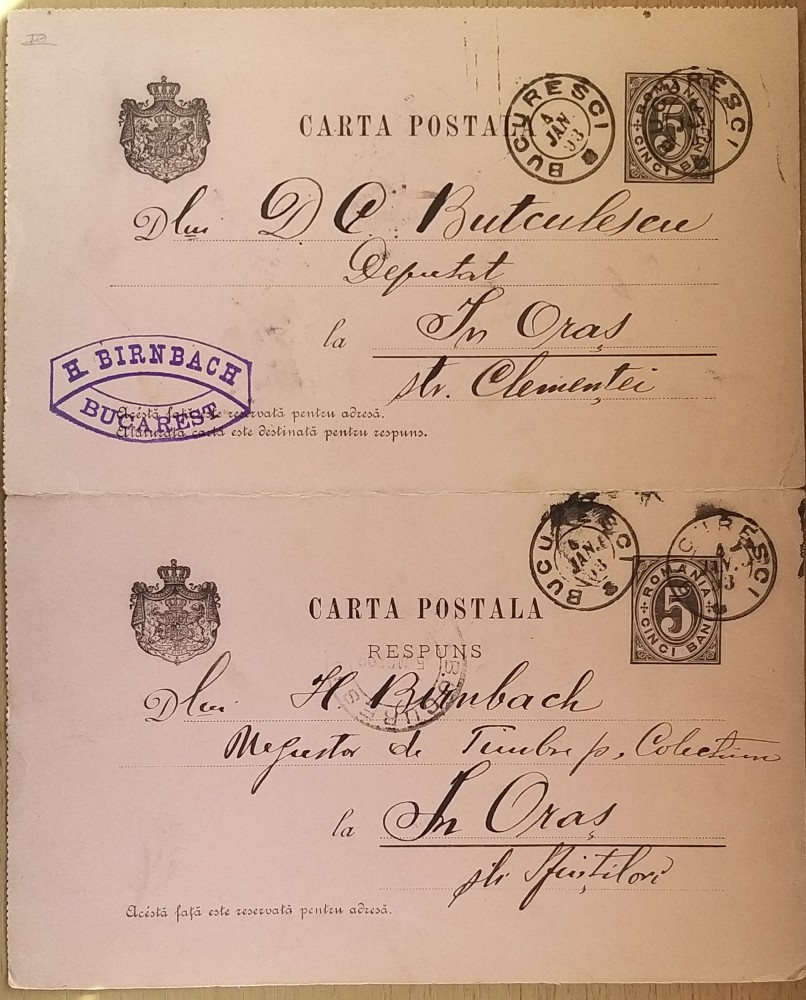 CARTA POSTALA
BUCURESCI
4
JAN
93
BUCURESCI
ROMANIA
5
CINCI BANI
Dlui D C. Butculescu
Deputat
la In Oraș
str. Clemenței
H BIRNBACH
BUCAREST
Acéstă față este reservată pentru adresă.
Alăturata cartă este destinată pentru respuns.
BUCURESCI
4
JAN.
93
CURESCI
4
JAN.
93
CARTA POSTALA
ROMANIA
5
CINCI BANI
RESPUNS
BUCURES
Dlui H Birnbach
Negustor de Timbre p. Colectiuni
la In Oraș
str Sfinților
Acéstă față este reservată pentru adresă.